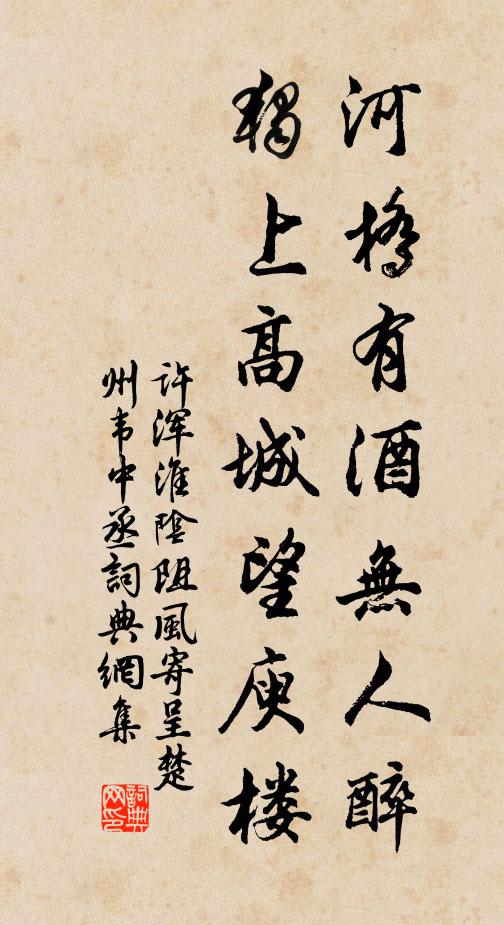 河橋有酒無人醉
獨上高城望庾楼
许浑淮陰阻風寄呈楚
州韦中丞詞典網集
詞典网印